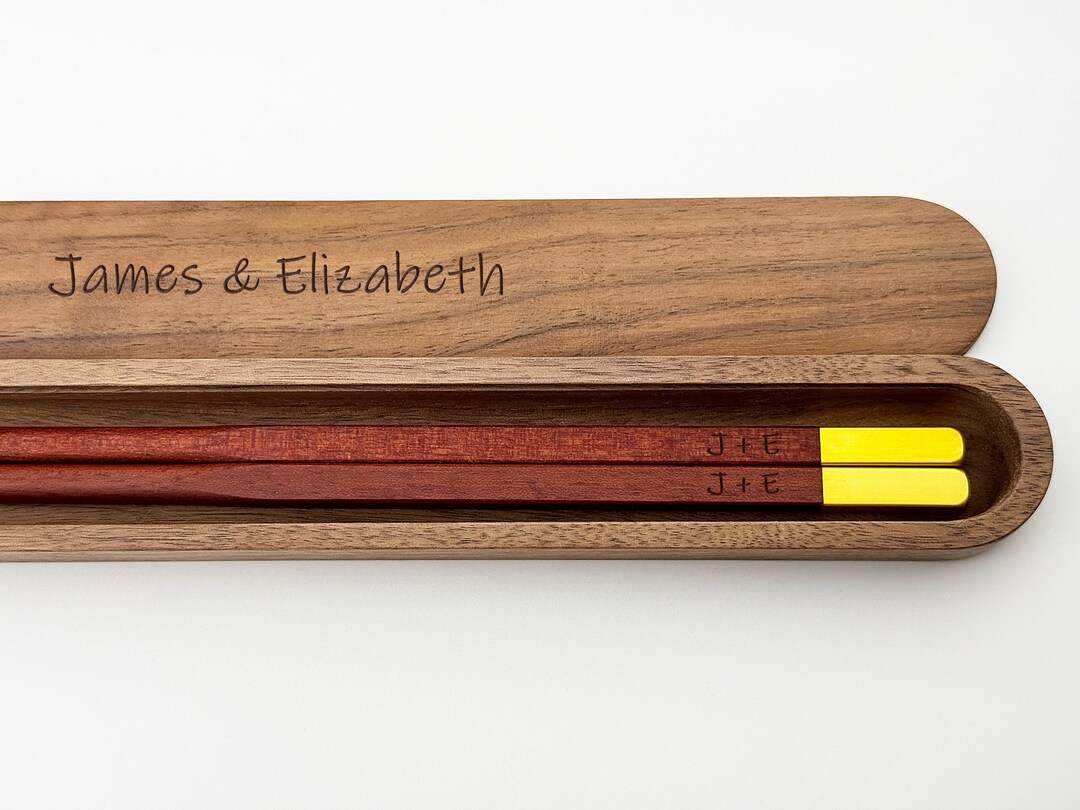 James & Elizabeth
J + E
J + E